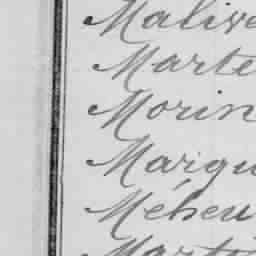 Malive
Marte
Morin
Marqu
Méheu
Marti